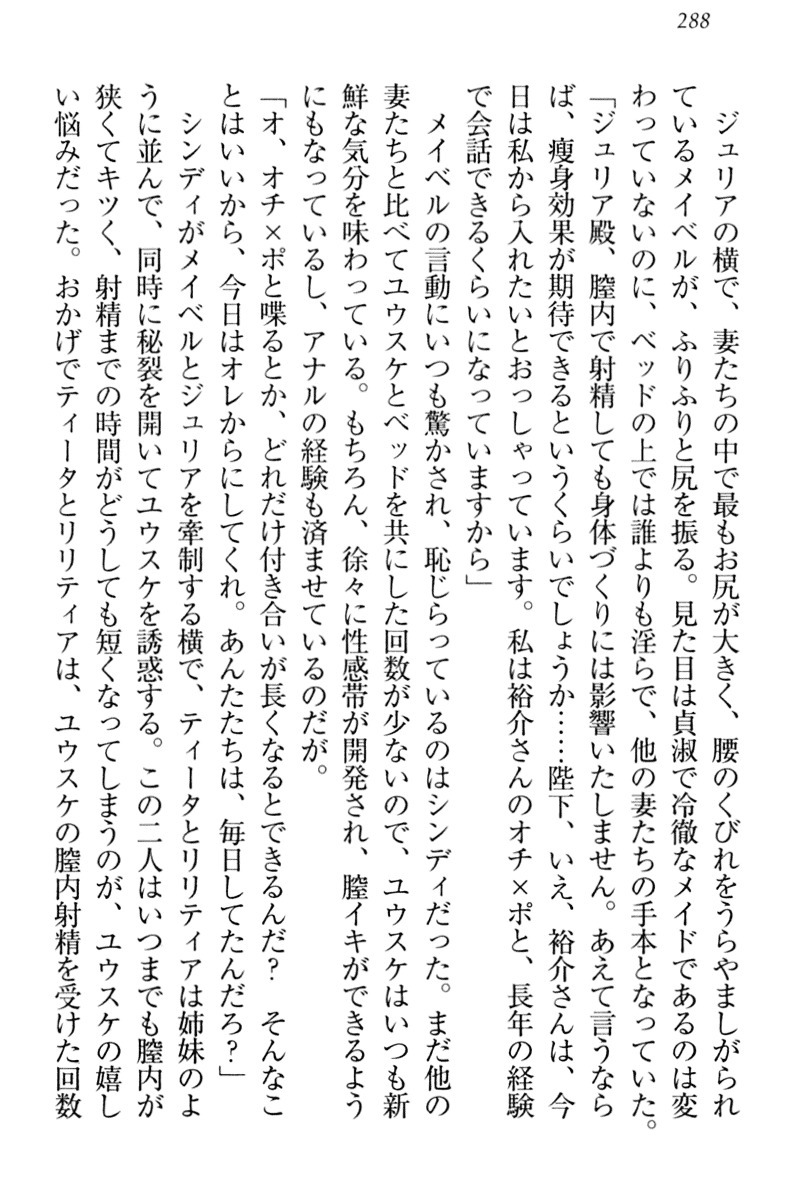 288
ジュリアの横で、妻たちの中で最もお尻が大きく、腰のくびれをうらやましがられ
ているメイベルが、ふりふりと尻を振る。見た目は貞淑で冷徹なメイドであるのは変
わっていないのに、ベッドの上では誰よりも淫らで、他の妻たちの手本となっていた。
「ジュリア殿、膣内で射精しても身体づくりには影響いたしません。あえて言うなら
ば、痩身効果が期待できるというくらいでしょうか……陛下、いえ、裕介さんは、今
日は私から入れたいとおっしゃっています。私は裕介さんのオチ×ポと、長年の経験
で会話できるくらいになっていますから」
メイベルの言動にいつも驚かされ、恥じらっているのはシンディだった。まだ他の
妻たちと比べてユウスケとベッドを共にした回数が少ないので、ユウスケはいつも新
鮮な気分を味わっている。もちろん、徐々に性感帯が開発され、膣イキができるよう
にもなっているし、アナルの経験も済ませているのだが。
「オ、オチ×ポと喋るとか、どれだけ付き合いが長くなるとできるんだ？　そんなこ
とはいいから、今日はオレからにしてくれ。あんたたちは、毎日してたんだろ？」
シンディがメイベルとジュリアを牽制する横で、ティータとリリティアは姉妹のよ
うに並んで、同時に秘裂を開いてユウスケを誘惑する。この二人はいつまでも膣内が
狭くてキツく、射精までの時間がどうしても短くなってしまうのが、ユウスケの嬉し
い悩みだった。おかげでティータとリリティアは、ユウスケの膣内射精を受けた回数